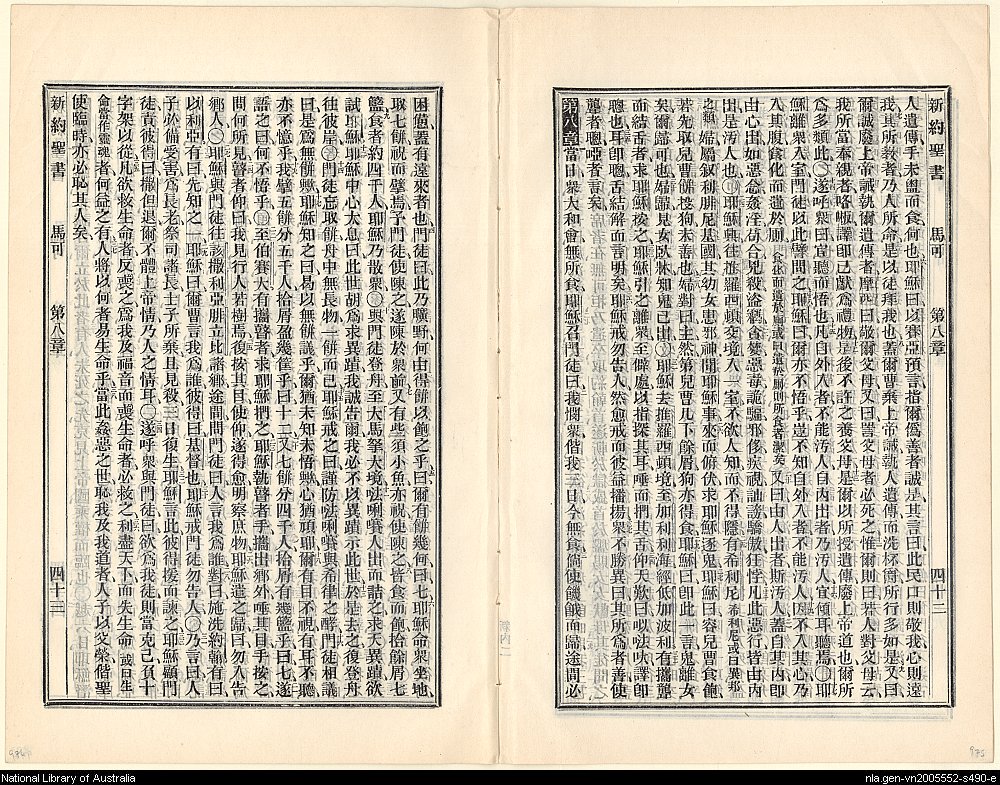 新約聖書 馬可 第八章 四十二
人遺傳手未盥而食何也耶穌曰以賽亞預言指爾僞善者誠是其言曰此民口則敬我心則遠
我其所教者乃人所命是以徒拜我也蓋爾曹棄上帝誡執人遺傳而洗杯所行多如是又曰
爾誠廢上帝誡執爾遺傳者摩西曰敬爾父母又曰詈父母者必死之惟爾則曰若人對父母云
我所當奉親者譯卽已獻爲禮物是後不許之養父母是爾以所授遺傳廢上帝道也爾所
爲多類此遂呼衆曰宜聽而悟也凡自外入者不能汚人自內出者乃汚人宜傾耳聽焉耶
穌離衆入室門徒以此譬問之耶穌曰爾亦不悟乎豈不知自外入者不能汚人因不入其心乃
入其腹食化而遺於廁又曰由人出者斯汚人蓋自其內卽
由心出如惡念姦淫苟合兇殺盜竊貪婪惡毒詭騙邪侈疾視訕謗驕傲狂悖凡此惡行皆由內
出是汚人也耶穌興往推羅西頓交境入一室不欲人知而不得隱有希利尼
之婦屬敘利腓尼基國其幼女患邪神聞耶穌事來而俯伏求耶穌逐鬼耶穌曰容兒曹食飽
若先取兒曹餅投狗未善也婦對曰主然第兒曹几下餘屑狗亦得食耶穌曰卽此一言鬼離女
矣爾歸可也婦歸見女臥牀知鬼已出耶穌去推羅西頓境至加利利海經低加波利有攜聾
而結舌者求耶穌按之耶穌引之離衆至僻處以指探其耳唾而捫其舌仰天歎曰以法大譯卽
聰也耳卽聰舌結解而言明矣耶穌戒勿告人人然愈戒而彼益播揚衆不勝異曰其所爲者善使
聾者聰啞者言矣
第八章當日衆大和會無所食耶穌召門徒曰我憫衆偕我三日今無食倘使饑餓而歸途間必
新約聖書 馬可 第八章 四十三
困憊蓋有遠來者也門徒曰此乃曠野何由得餅以飽之乎曰爾有餅幾何曰七耶穌命衆坐地
取七餅祝而擘焉予門徒使陳之遂陳於衆前又有些須小魚亦祝使陳之皆食而飽拾餘屑七
籃食者約四千人耶穌乃散衆與門徒登舟至大馬拏大境法利賽人出而詰之求天異蹟欲
試耶穌耶穌中心太息曰此世胡爲求異蹟我誠告爾我必不以異蹟示此世於是去之復登舟
往彼岸門徒忘取餅舟中無長物一餅而已耶穌戒之曰謹防法利賽與希律之酵門徒相議
曰是爲無餅歟耶穌知之曰曷以無餅議乎爾猶未知未悟歟心猶頑耶爾有目不視有耳不聽
亦不憶乎我擘五餅分五千人拾屑盈幾筐乎曰十二又七餅分四千人拾屑有幾籃乎曰七遂
語之曰何不悟乎至伯賽大有攜瞽者求耶穌捫之耶穌執瞽者手攜出鄕外唾其目手按之
問何所見瞽者仰曰我見行人若樹焉後按其目使仰遂得愈明察庶物耶穌遣之歸曰勿入告
鄕人耶穌與門徒往該撒利亞腓立比諸鄕途間問門徒曰人言我爲誰對曰施洗約翰有曰
以利亞有曰先知之一耶穌曰爾曹言我爲誰彼得曰基督也耶穌戒門徒勿告人乃言曰人
子必備受害爲長老祭司諸長士子所棄且見殺三日復生耶穌言此彼得援而諫之耶穌顧門
徒責彼得曰撒但退爾不體上帝情乃人之情耳遂呼衆與門徒曰欲爲我徒則當克己負十
字架以從凡欲救生命者反喪之爲我及福音而喪生命者必救之利盡天下而失生命或曰生
命當作靈魂者何益之有人將以何者易生命乎當此姦惡之世恥我及我道者人子以父榮偕聖
使臨時亦必恥其人矣
975
National Library of Australia
nla.gen-vn2005552-s490-e